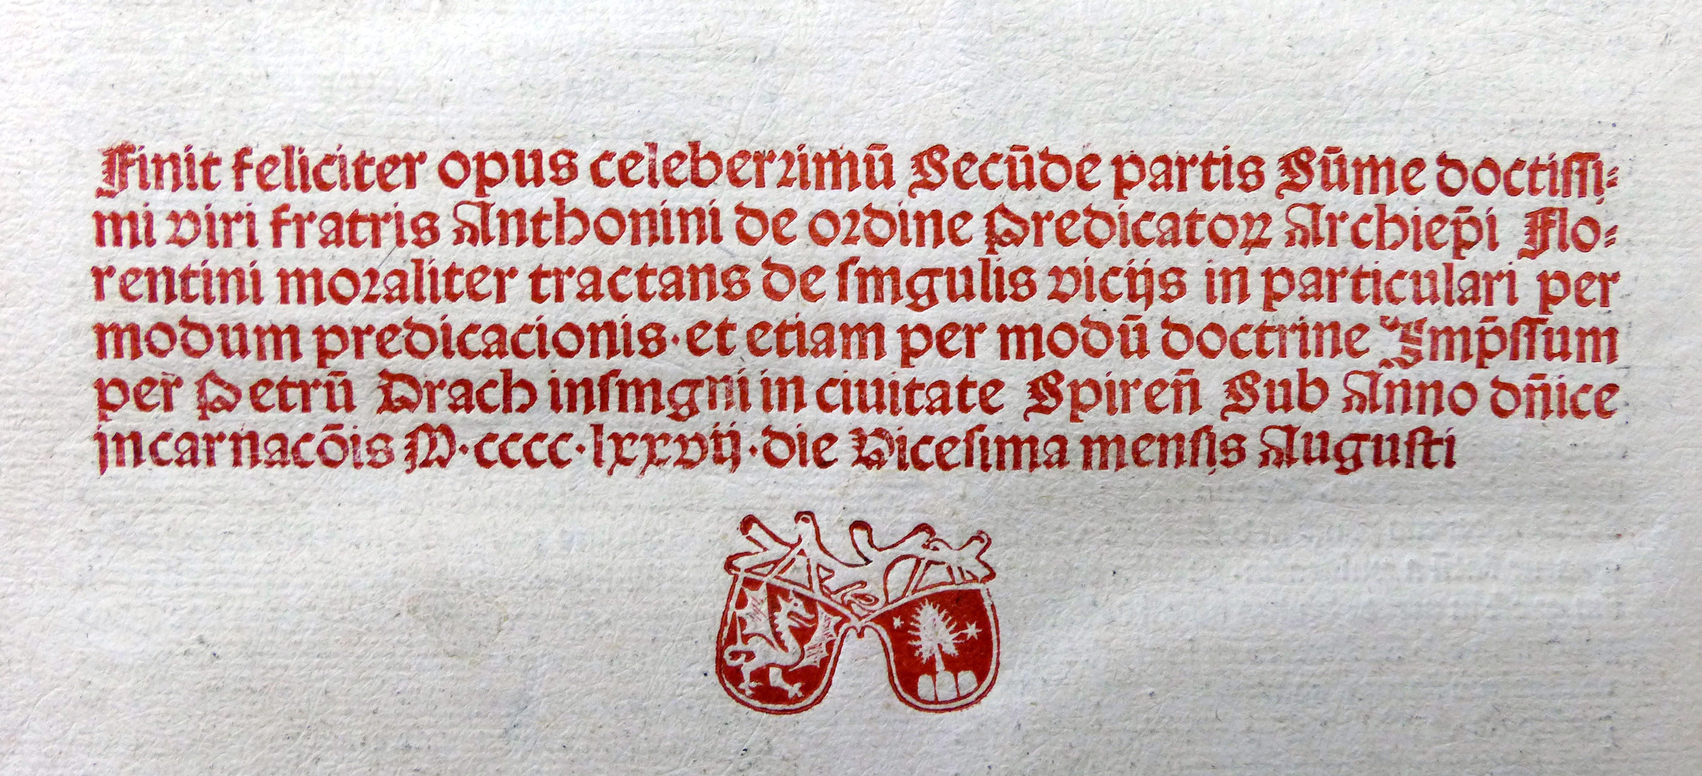 Finit feliciter opus celeberrimū Secūde partis Sūme doctissi⸗
mi viri fratris Anthonini de ordine Predicatoꝝ Archiep̄i Flo⸗
rentini moraliter tractans de smgulis vicijs in particulari per
modum predicacionis·et etiam per modū doctrine Imp̄ssum
per Petrū Drach insmgni in ciuitate Spireñ Sub Anno dñice
incarnacōis M·cccc·lxxvij·die Vicesima mensis Augusti